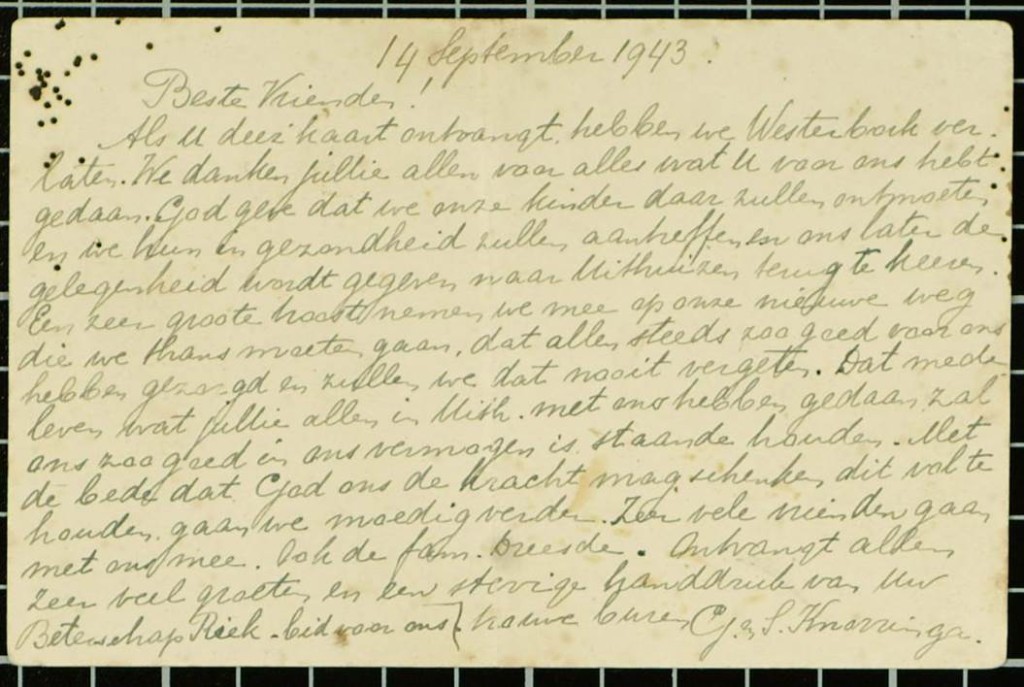 14 September 1943.
Beste Vrienden!
Als U deez' kaart ontvangt, hebben we Westerbork ver-
laten. We danken jullie allen voor alles wat U voor ons hebt
gedaan. God geve dat we onze kinder daar zullen ontmoeten
en we hun in gezondheid zullen aantreffen en ons later de
gelegenheid wordt gegeven naar Uithuizen terug te keeren.
Een zeer groote troost nemen we mee op onze nieuwe weg
die we thans moeten gaan, dat allen steeds zoo goed voor ons
hebben gezorgd en zullen we dat nooit vergeten. Dat mede
leven wat jullie allen in Uith. met ons hebben gedaan, zal
ons zoo goed in ons vermogen is, staande houden. Met
de bede dat God ons de kracht mag schenken dit vol te
houden, gaan we moedig verder. Zeer vele vrienden gaan
met ons mee. Ook de fam. Dreesde. Ontvangt allen
zeer veel groeten en een stevige handdruk van Uw
Beterschap Riek - bid voor ons } trouwe buren G. en S. Knorringa.